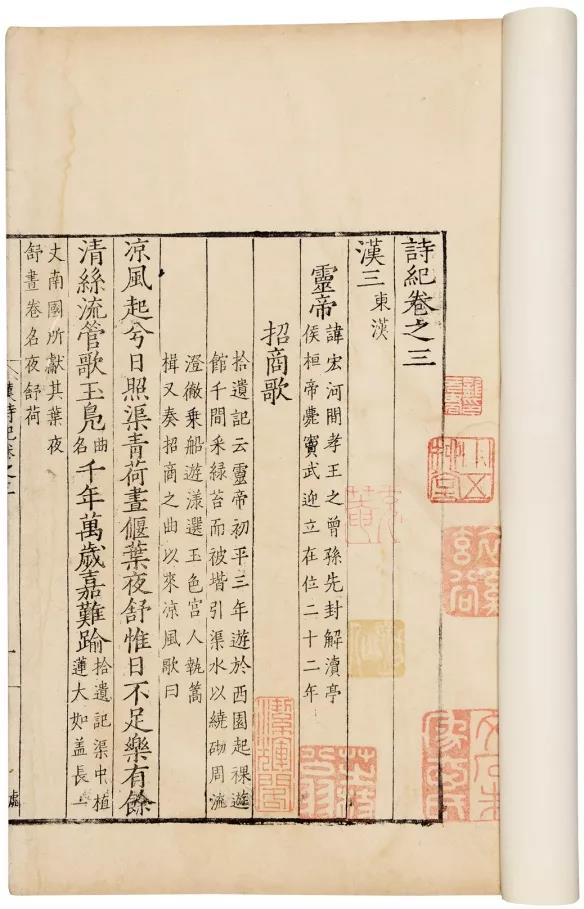 詩紀卷之三
漢三 東漢
靈帝 諱宏河間孝王之曾孫先封解瀆亭
侯桓帝薨竇武迎立在位二十二年
招商歌
拾遺記云靈帝初平三年遊於西園起裸遊
館千間采緑苔而被堦引渠水以繞砌周流
澄徹乘船遊漾選玉色宮人執篙
楫又奏招商之曲以來凉風歌曰
凉風起兮日照渠青荷晝偃葉夜舒惟日不足樂有餘
清絲流管歌玉鳧曲名千年萬歲嘉難踰 拾遺記渠中植
蓮大如盖長一
丈南國所獻其葉夜
舒晝卷名夜舒荷